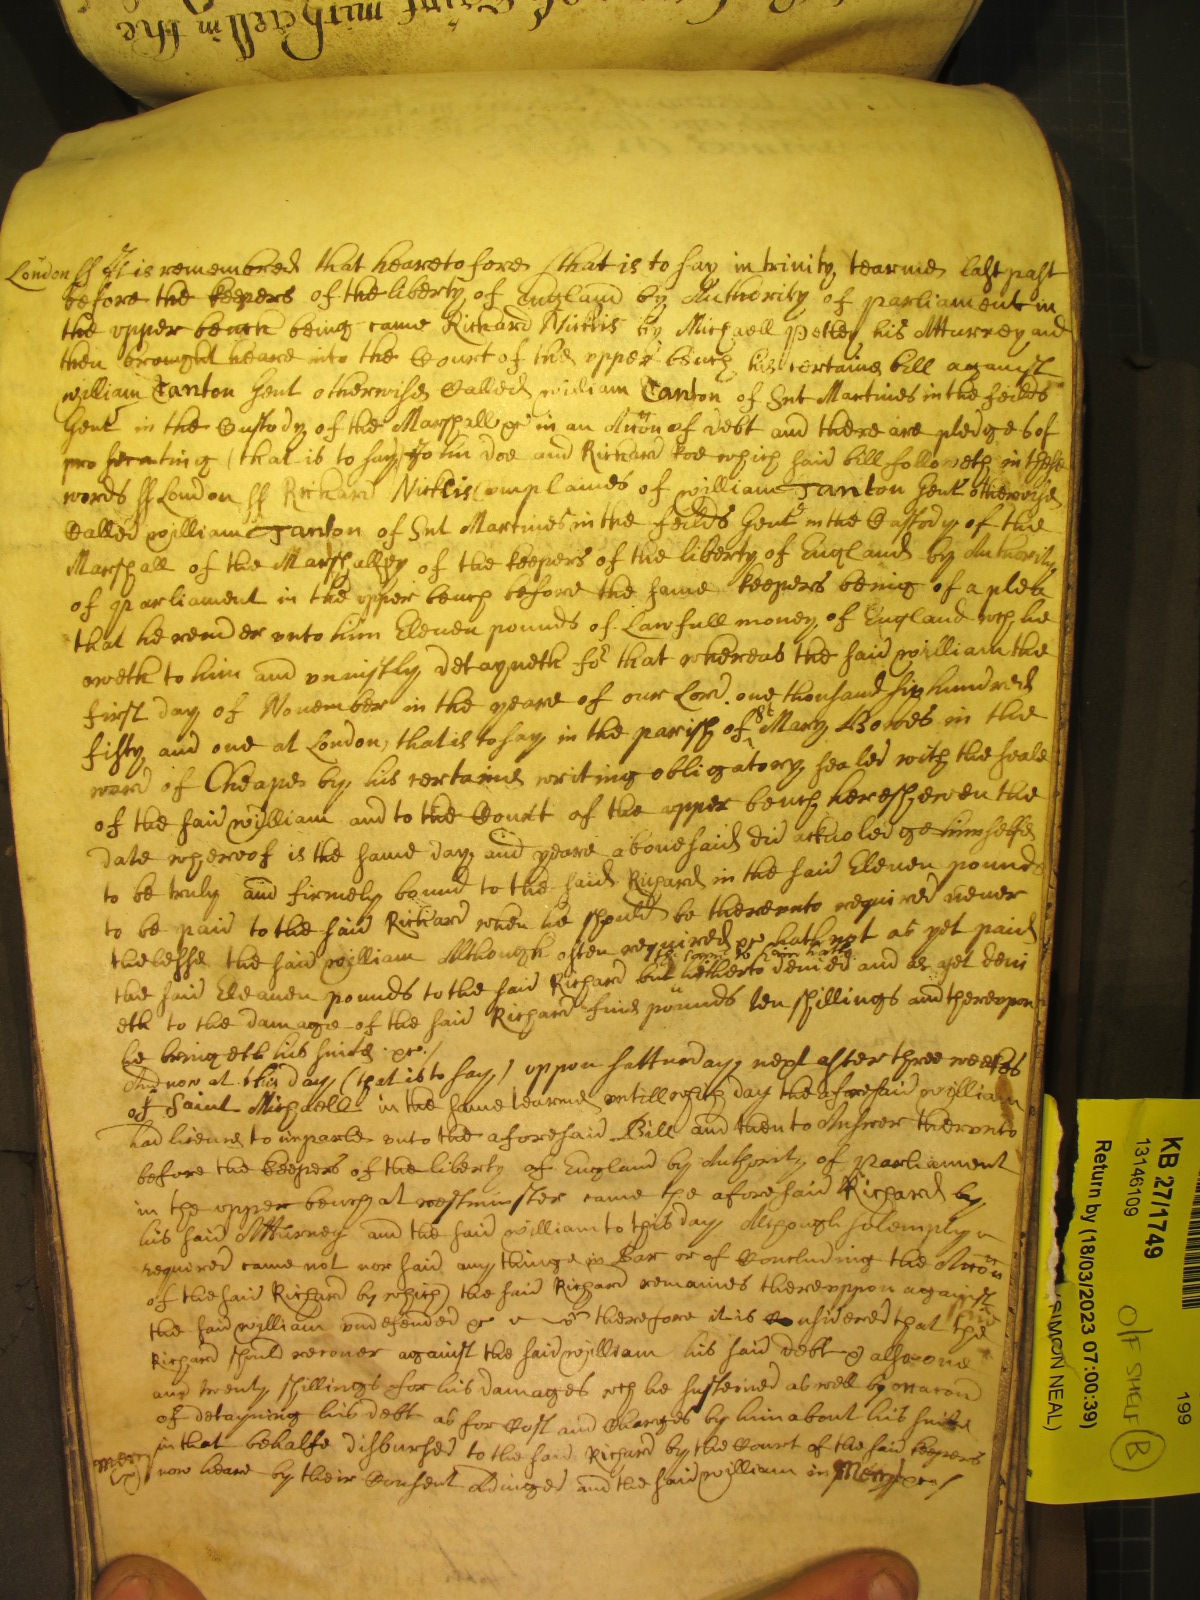 of Saint Michaell in the
London ss It is remembred that heretofore (that is to say in trinity tearme last past
before the keepers of the liberty of England by Authority of parliament in
the upper bench being came Richard Nicklis by Michaell Petley his Atturney and
then brought heare into the Court of the upper bench his certaine bill against
william Tanton Gent otherwise Called william Tanton of Snt Martines in the feilds
Gent in the Custody of the Marshall &c in an Accon of debt and there are pledges of
prosecuting (that is to say) John Doe and Richard Roe which said bill followeth in these
words ss London ss Richard Nicklis Complaines of william Tanton Gent otherwise
Called william Tanton of Snt Martines in the feilds Gent in the Custody of the
Marshall of the Marshallsey of the keepers of the liberty of England by Authority
of parliament in the upper bench before the same keepers being of a plea
that he render unto him Eleven pounds of Lawfull money of England wch he
oweth to him and uniustly detayneth for that whereas the said william the
first day of November in the yeare of our Lord one thousand six hundred
fifty and one at London, that is to say in the parish of St Mary Bowes in the
ward of Cheape by his certaine writing obligatory sealed with the seale
of the said william and to the Court of the upper bench here shewen the
date whereof is the same day and yeare abovesaid did acknoledge himselfe
to be truly and firmely bound to the said Richard in the said Eleven pounds
to be paid to the said Richard when he should be thereunto required never
thelesse the said william Although often required &c hath not as yet paid
the said Eleaven pounds to the said Richard but hetherto denied and as yet deni
eth to the damage of the said Richard five pounds ten shillings and thereupon
he bringeth his suite &c /
And now at this day (that is to say) uppon Satturday next after three weekes
of Saint Michaell in the same tearme untill which day the aforesaid william
had licence to imparle unto the aforesaid Bill and then to Answer therunto
before the keepers of the liberty of England by Authority of Parliament
in the upper bench at westminster came the aforesaid Richard by
his said Atturney and the said william to this day Although solemply
required came not nor said any thinge in Bar or of Concluding the Accon
of the said Richard by which the said Richard remaines thereuppon against
the said william undefended &c therefore it is Considered that the said
Richard should recover against the said william his said debt & also one
and twenty shillings for his damages wch he susteined as well by occacon
of detayning his debt as for Cost and Charges by him about his suite
in that behalfe disbursed to the said Richard by the Court of the said keepers
now heare by their Consent Adiuged and the said william in Mercy &c /
KB 27/1749
13146109
Return by (18/03/2023 07:00:39)
SIMON NEAL)
199
OFF SHELF
B